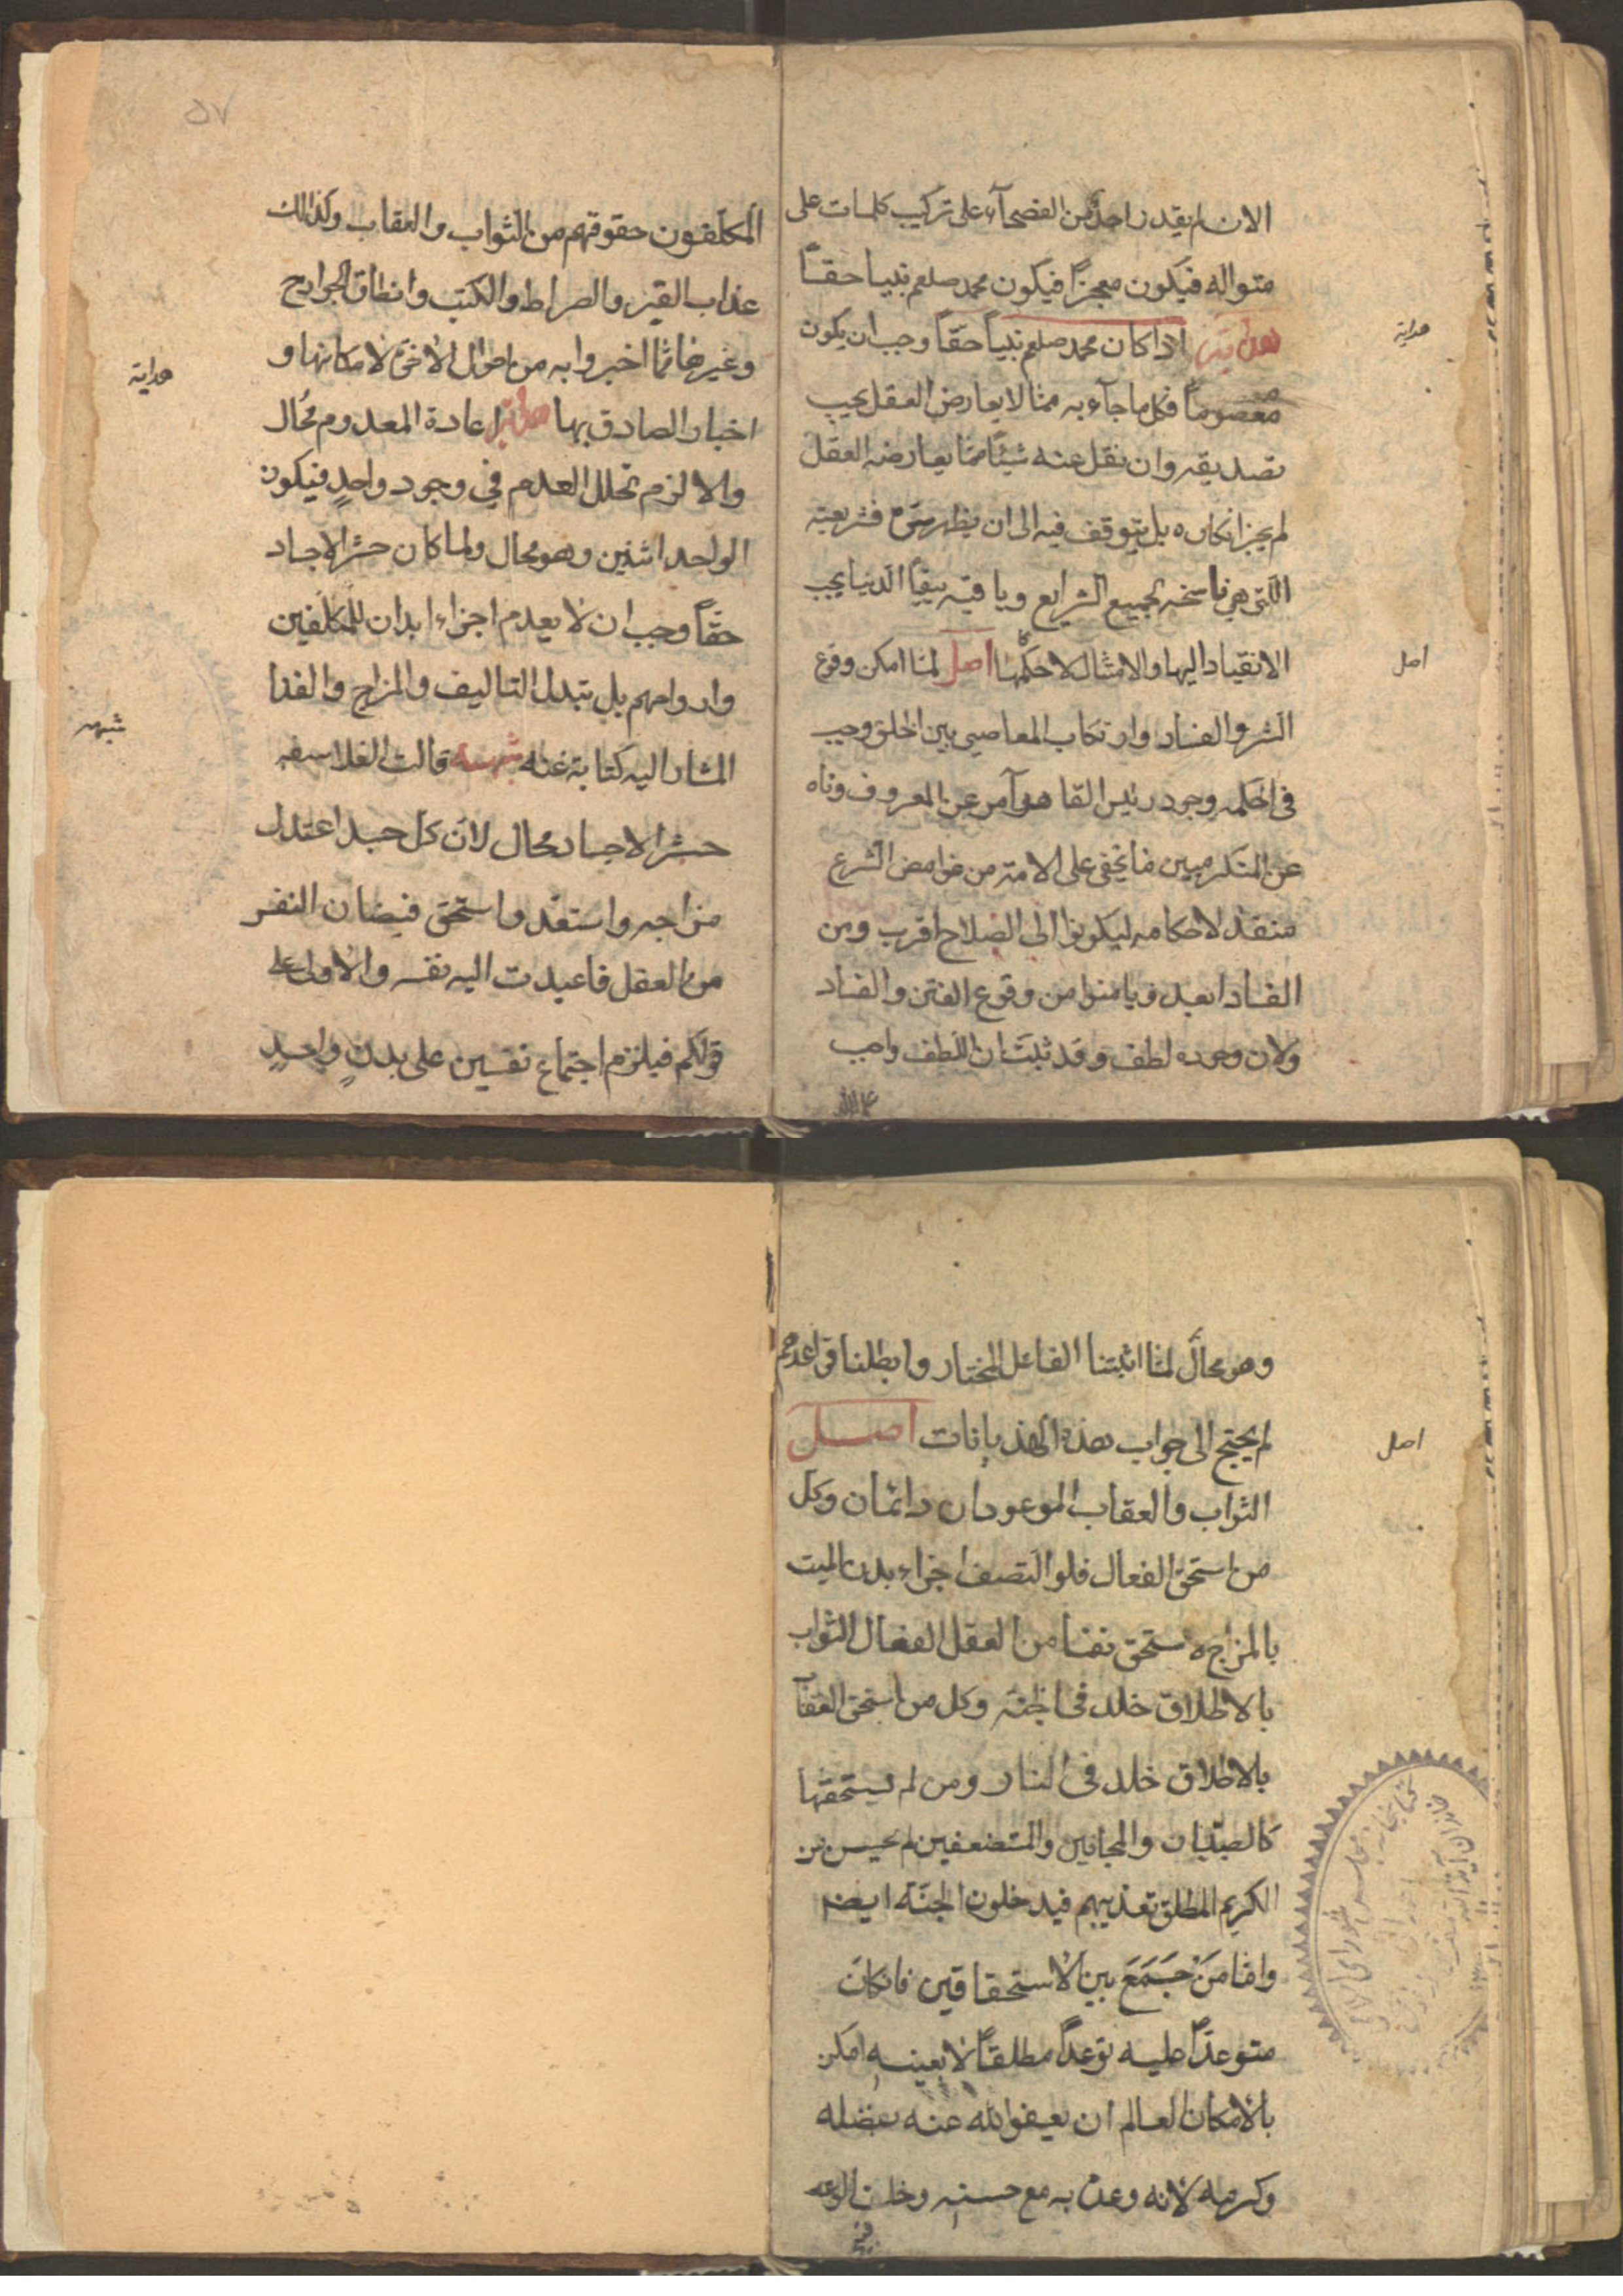 الان لم يقدر احدٌ من الفصحآء على تركيب كلمات على
منواله فيكون معجزاً فيكون محمد صلعم نبيا حقاً
هداية اذا كان محمد صلعم نبياً حقاً وجب ان يكون
هداية
معصوماً فكل ما جآء به ممّا لا يعارض العقل يجب
تصديقه وان نقل عنه شيئاً ممّا يعارضه العقل
لم يجز انكاره بل يتوقف فيه الى ان يظهر سرّه فشريعته
الّتى هى ناسخه لجميع الشرايع وباقيته ببقآ الدنيا يجب
الانقياد اليها والامتثال لاحكمها اصل لمّا امكن وقوع
اصل
الشر والفساد وارتكاب المعاصى بين الخلق وجب
فى الحكمه وجود رئيس القاهر آمر عن المعروف وناه
عن المنكر مبين ما يخفى على الامة من غوامض الشرع
منفذ لاحكامه ليكونوا الى الصلاح اقرب ومن
الفساد ابعد ويامنوا من وقوع الفتن والفساد
ولان وجوده لطف وقد ثبت ان اللطف واجب
٥٧
المكلّفون حقوقهم من الثواب والعقاب وكذالك
عذاب القبر والصراط والكتب وانطاق الجوارح
وغيرها ممّا اخبروا به من احوال الاخرة لامكانها و
اخبار الصادق بها هداية اعادة المعدوم مُحال
هداية
والا لزم تخلل العدم في وجود واحدٍ فيكون
الواحد اثنين وهو محال ولما كان حشر الاجساد
حقاً وجب ان لا يعدم اجزاء ابدان المكلفين
وارواحهم بل يتبدل التاليف والمزاج والفنا
المشار اليه كناية عنه شبهه قالت الفلاسفه
شبهه
حشر الاجساد محال لان كل جسد اعتدل
مزاجه واستعدّ واستحق فيضان النفس
من العقل فاعيدت اليه نفسه والاولى على
قولكم فيلزم اجتماع نفسين على بدنٍ واحدٍ
وهو محالٌ لمّا اثبتنا الفاعل المختار وابطلنا قواعدهم
لم يحتج الى جواب هذه الهذيانات اصل
اصل
الثواب والعقاب الموعودان دائمان وكل
من استحق الفعال فلو اتصف اجزاء بدن الميت
بالمزاج ه ستحق نفسا من العقل الفعال الثواب
بالاطلاق خلد فى الجنة وكل من استحق العقآ
بالاطلاق خلد فى النار ومن لم يستحقها
كالصبيان والمجانين والمستضعفين لم يحسن من
الكريم المطلق تعذيبهم فيدخلون الجنّة ايضم
وامّا مَن جَمَعَ بين الاستحقاقين فانكان
متوعدّاً عليه توعداً مطلقاً لا بعينه امكن
بالامكان العالم ان يعفوالله عنه بفضله
وكرمه لانه وعد به مع حسنه وخلف الوعد